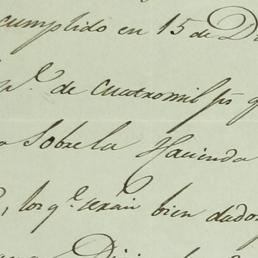 cumplido en 15 de D
pr. de cuatromil ps q
sobre la Hacienda
, los q.e serán bien dados